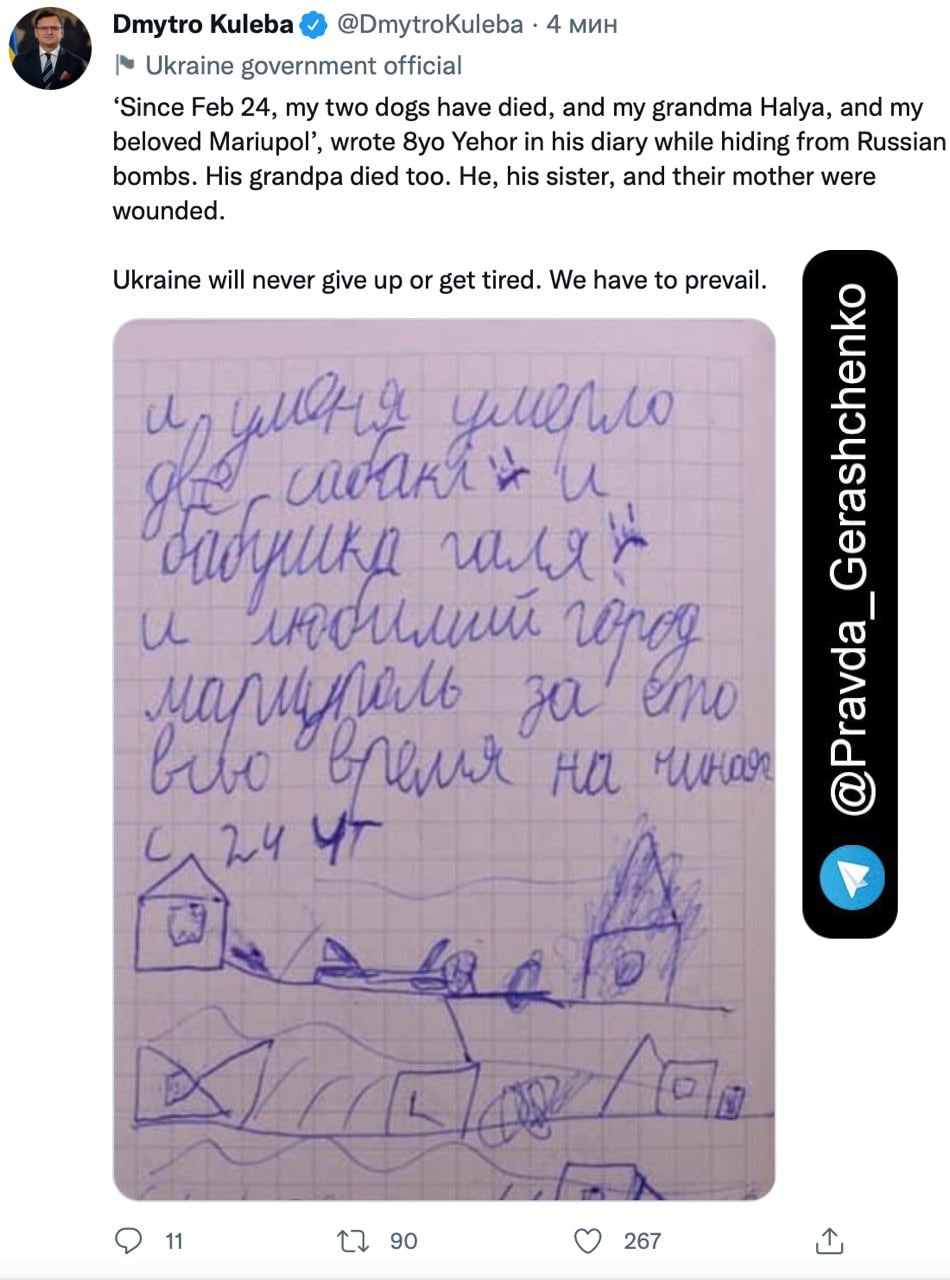 Dmytro Kuleba @DmytroKuleba · 4 мин
Ukraine government official
‘Since Feb 24, my two dogs have died, and my grandma Halya, and my
beloved Mariupol’, wrote 8yo Yehor in his diary while hiding from Russian
bombs. His grandpa died too. He, his sister, and their mother were
wounded.
Ukraine will never give up or get tired. We have to prevail.
и уменя умерло
две сабаки и
бабушка галя
и любимий город
мариуполь за ето
вию время на чиная
с 24 чт
@Pravda_Gerashchenko
11 90 267